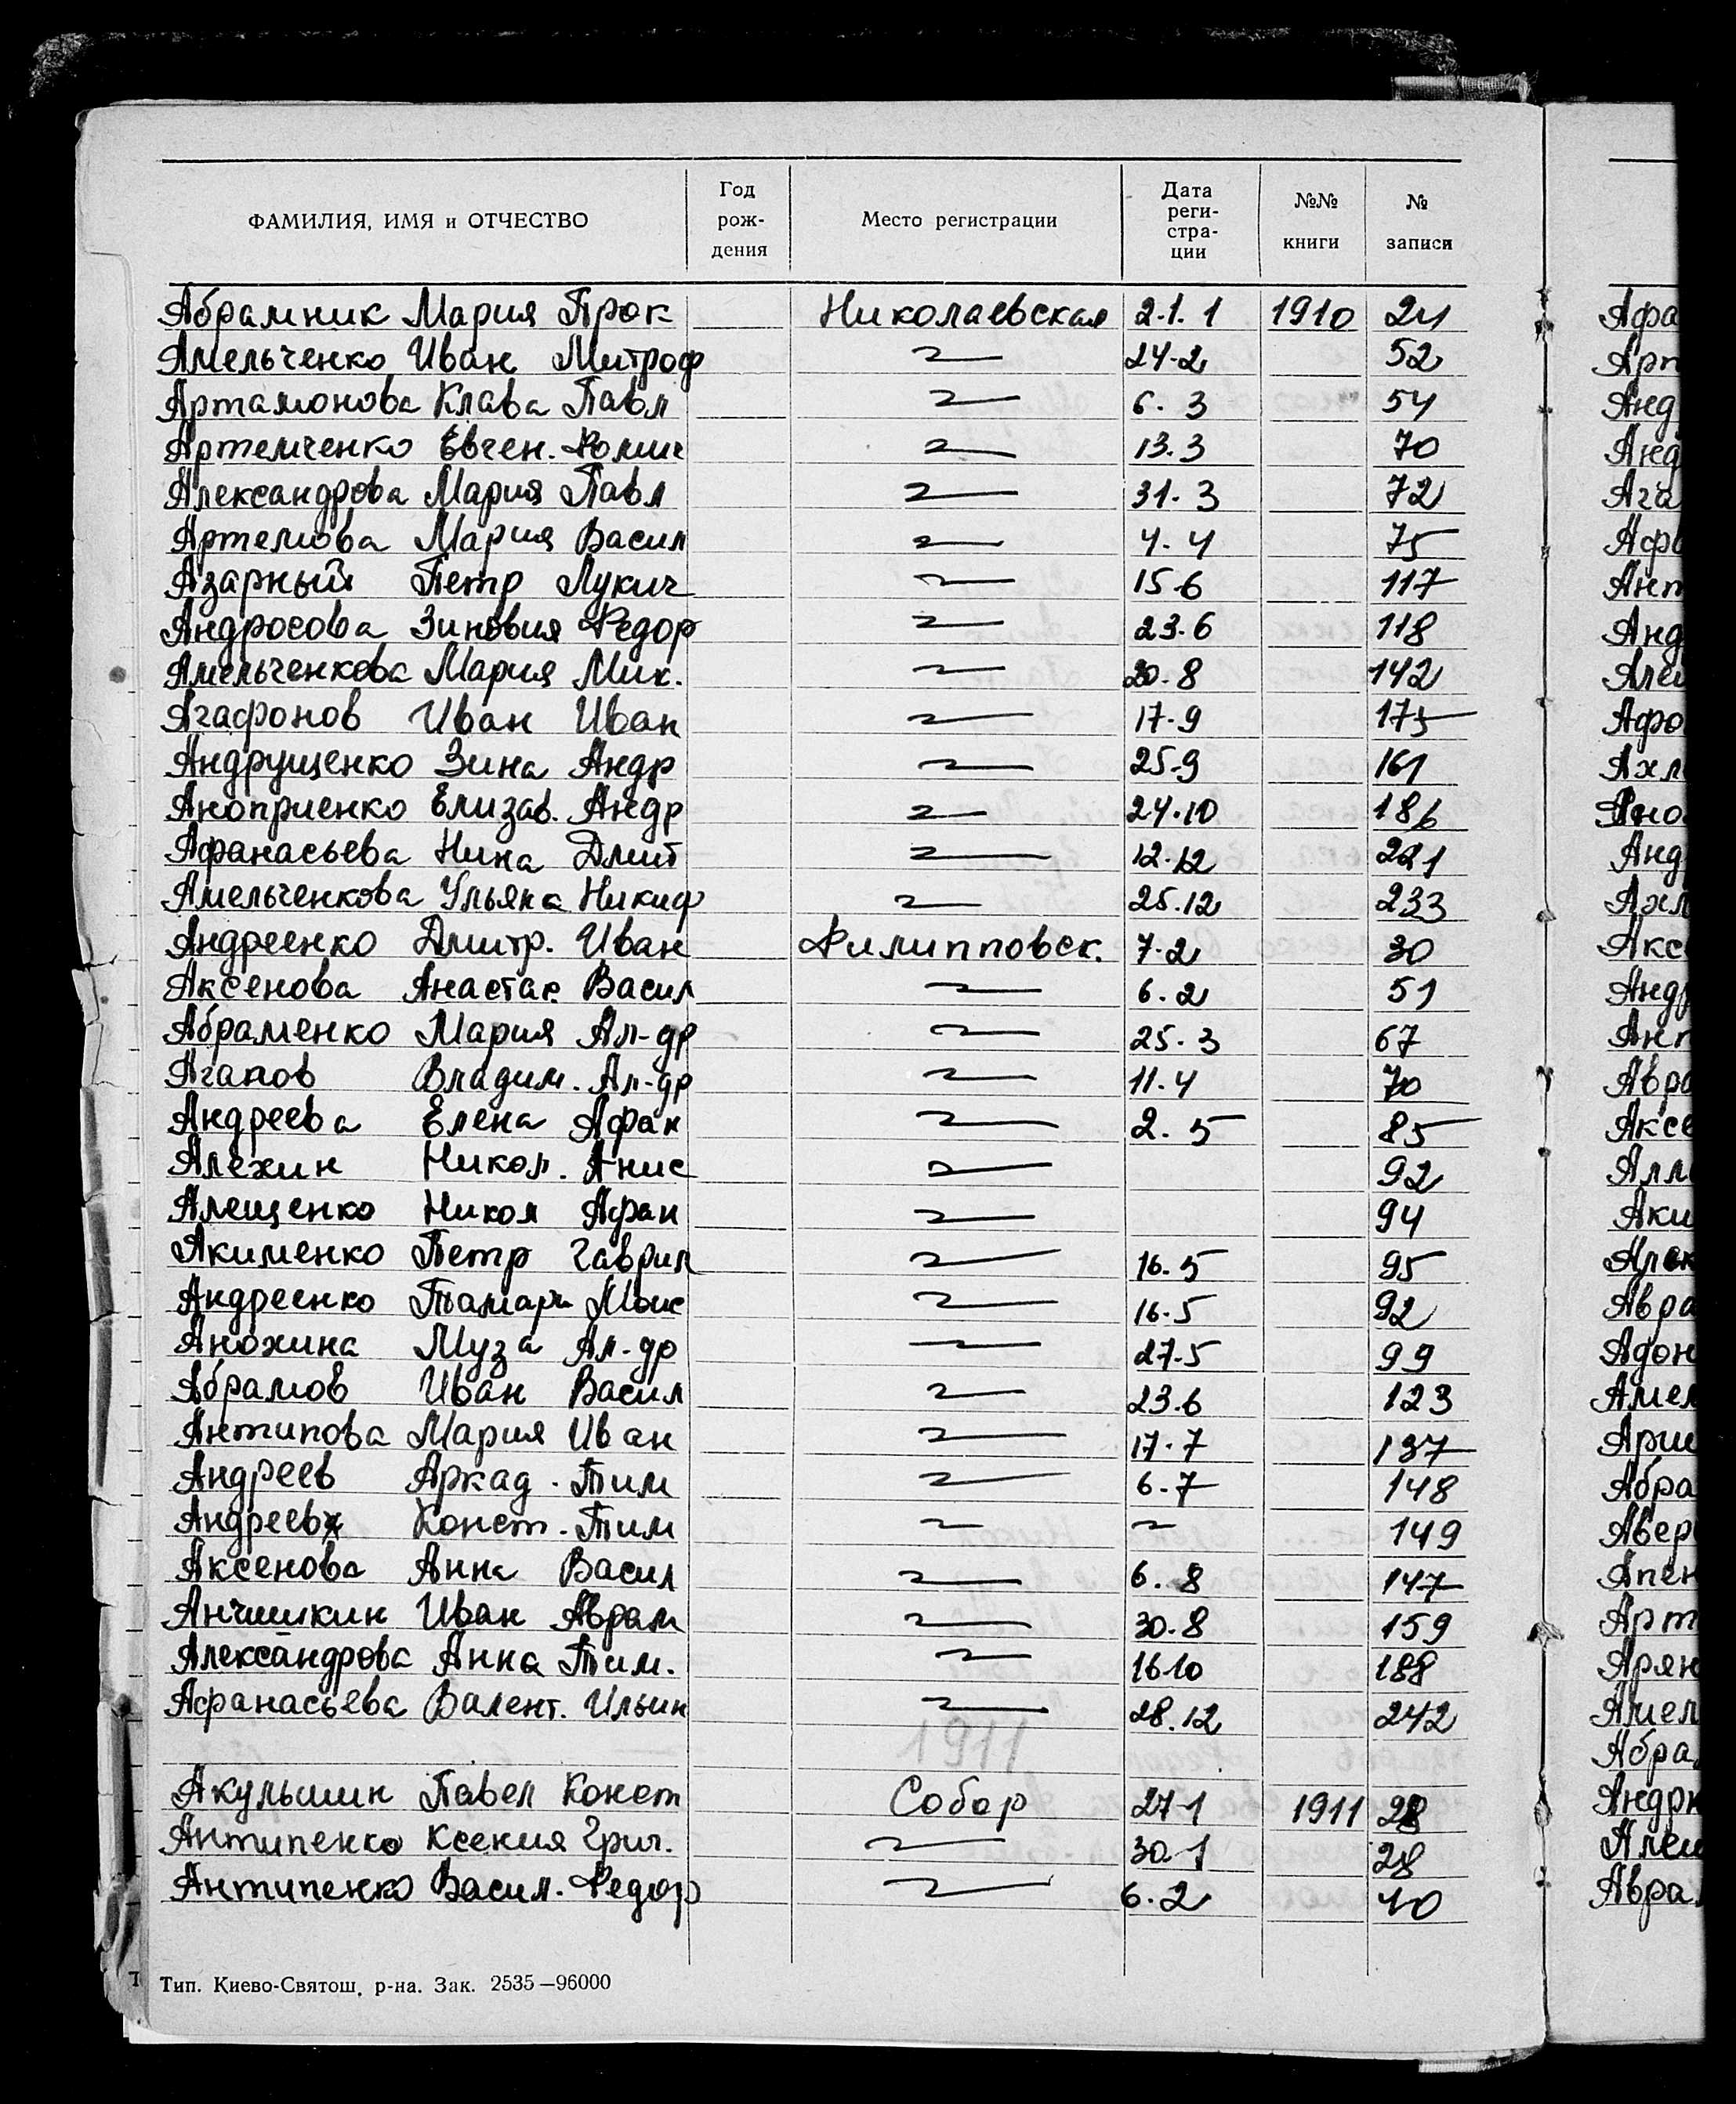 ФАМИЛИЯ, ИМЯ и ОТЧЕСТВО Год рож- дения Место регистрации Дата реги- стра- ции №№ книги № записи
Абрамник Мария Прок Николаевская 2.1.1 1910 24
Амельченко Иван Митроф 24-2 52
Артамонова Клава Павл 6.3 54
Артемченко Евген. Фомич 13.3 70
Александрова Мария Павл 31.3 72
Артемова Мария Васил 4.4 75
Азарный Петр Лукич 15-6 117
Андросова Зиновия Федор 23.6 118
Амельченкова Мария Мик. 30.8 142
Агафонов Иван Иван 17-9 175
Андрущенко Зина Андр 25-9 161
Аноприенко Елизав. Андр 24.10 186
Афанасьева Нина Дмит 12.12 221
Амельченкова Ульяна Никиф 25.12 233
Андреенко Дмитр. Иван Филипповск. 7-2 30
Аксенова Анастас Васил 6.2 51
Абраменко Мария Ал-др 25.3 67
Агапов Владим. Ал-др 11.4 70
Андреева Елена Афан 2.5 85
Алехин Никол. Анис 92
Алещенко Никол Афан 94
Акименко Петр Гаврил 16.5 95
Андреенко Тамара Моис 16-5 92
Анохина Муза Ал-др 27-5 99
Абрамов Иван Васил 23.6 123
Антипова Мария Иван 17.7 137
Андреев Аркад. Тим 6.7 148
Андреев Конст. Тим 149
Аксенова Анна Васил 6.8 147
Анчишкин Иван Аврам 30.8 159
Александрова Анна Тим. 16.10 188
Афанасьева Валент. Ильин 28.12 242
1911
Акульшин Павел Конст Собор 27-1 1911 28
Антипенко Ксения Григ. 30.1 28
Антипенко Васил. Федор 6.2 40
Тип. Киево-Святош. р-на. Зак. 2535—96000